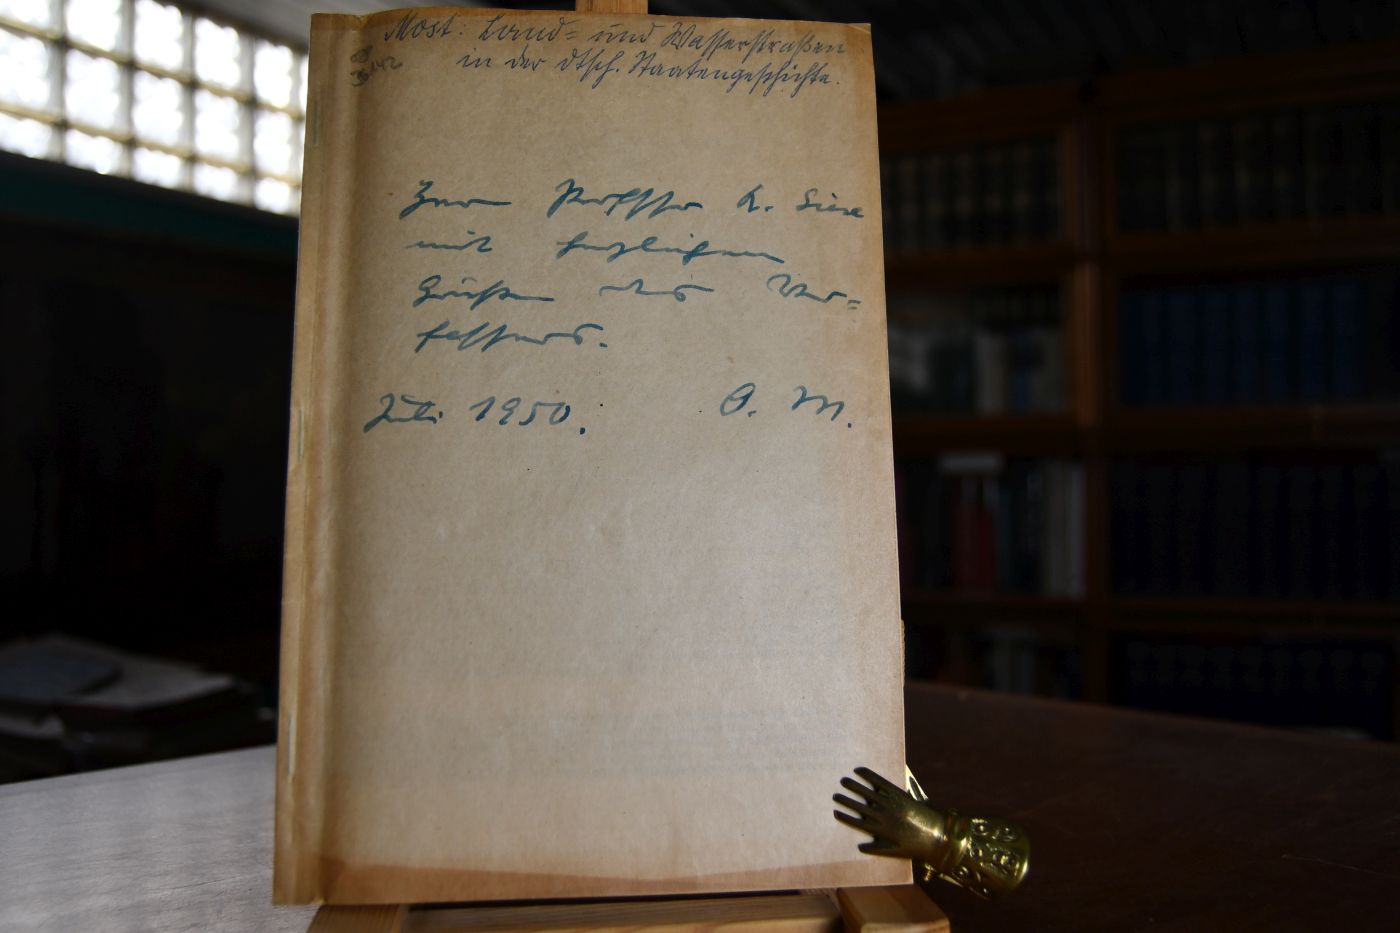 Most: Land= und Wasserstraßen
in der dtsch. Staatengeschichte.
Herrn Professor K.
mit herzlichen
Grüßen des Ver=
fassers.
Juli 1950. O. M.